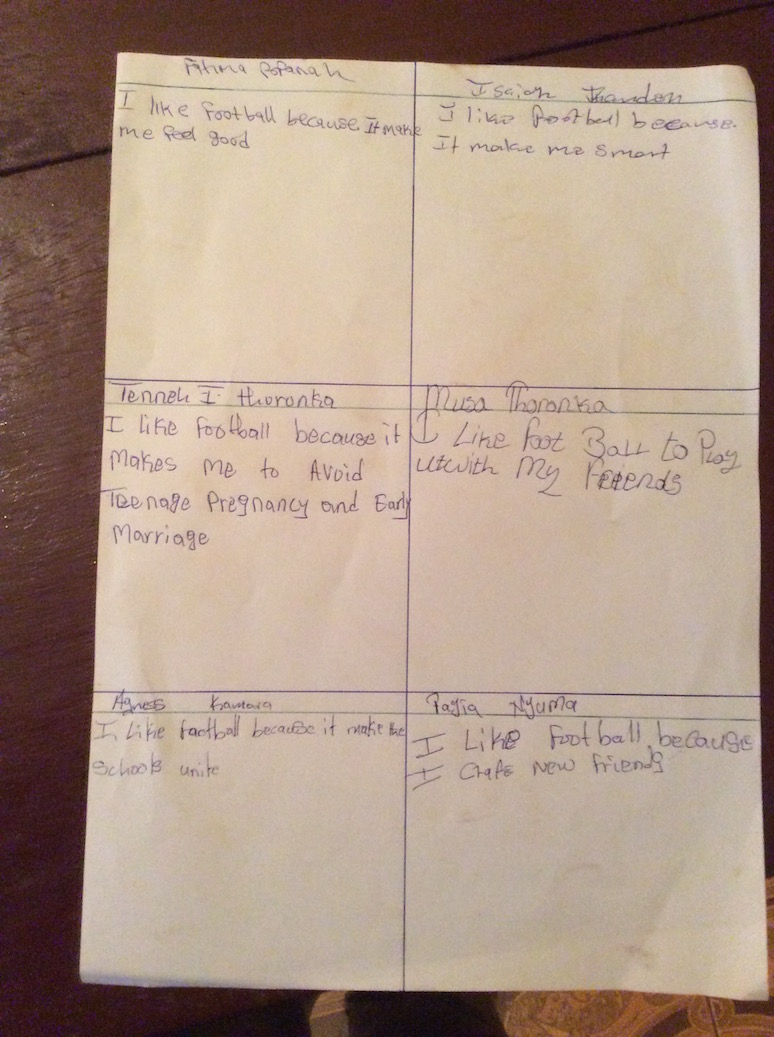 Fatma Fofanah
I like football because It make
me feel good
Isaiah
I like football because
It make me smart
Tenneh I. thoronka
I like football because it
Makes me to Avoid
Teenage Pregnancy and Early
Marriage
Musa Thoronka
I Like foot Ball to Play
with My friends
Agness Kamara
I Like football because it make the
schools unite
Nyuma
I Like football because
I new friends